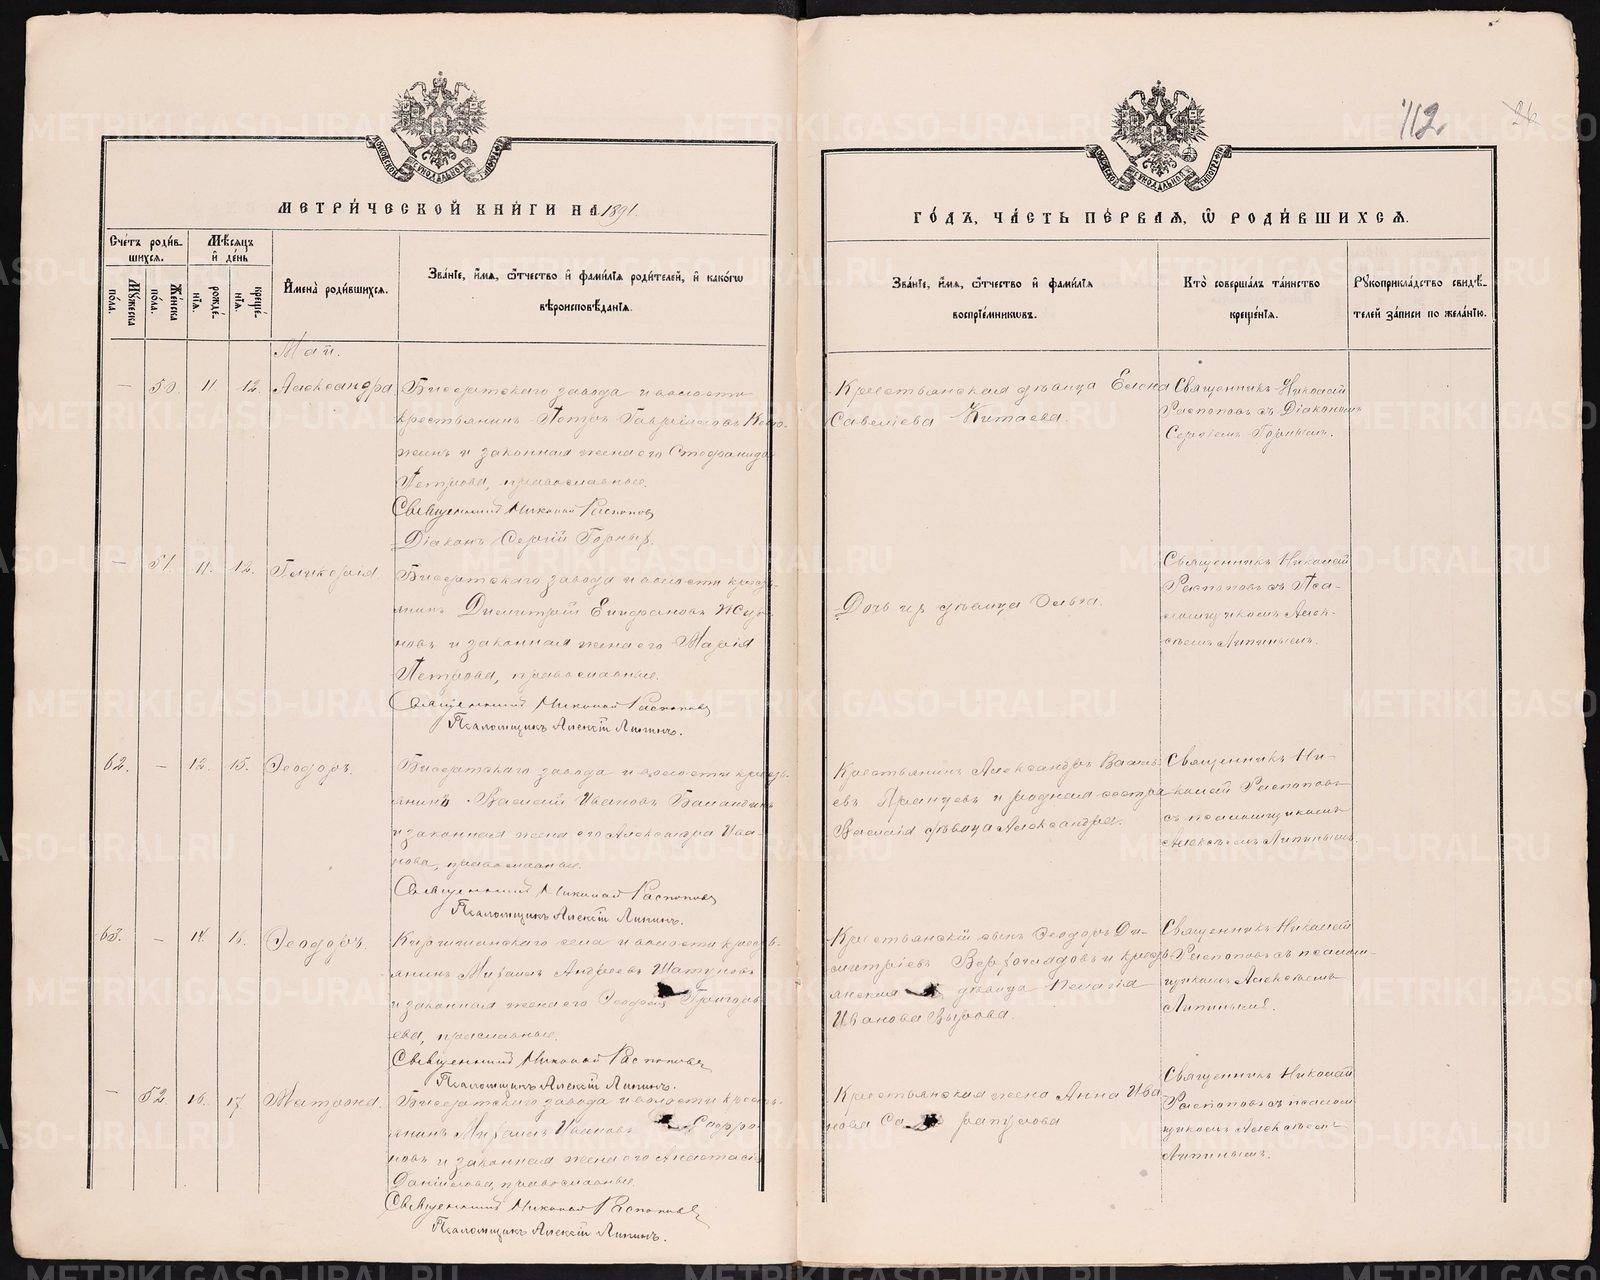 112
26
МЕТРИ́ЧЕСКОЙ КНИ́ГИ НА 1891.
ГО́ДЪ, ЧА́СТЬ ПЕ́РВАЯ, Ѿ РОДИ́ВШИХСЯ.
Сче́тъ роди́в-
шихся.
Му́жеска по́ла.
Же́нска по́ла.
Мѣ́сяцъ и де́нь
рожде́-
нія.
креще́-
нія.
И́мена роди́вшихся.
Зва́ніе, и́мя, ѻ́тчество и фами́лія роди́телей, и како́гѡ
вѣроисповѣ́данія.
Зва́ніе, и́мя, ѻ́тчество и фами́лія
воспріе́мникѡвъ.
Кто̀ соверша́лъ та́инство
креще́нія.
Рукоприкла́дство свидѣ́-
телей за́писи по жела́нію.
Май.
— 50 11 12. Александра
Бисертскаго завода и волости
крестьянинъ Петръ Гавріиловъ
жинъ и законная жена его Стефанида
Петрова, православные.
Священникъ Николай Распоповъ
Діаконъ Сергій Горныхъ.
Крестьянская дѣвица Елена
Савеліева Китаева.
Священникъ Николай
Распоповъ съ Діакономъ
Сергіемъ Горныхъ.
— 51. 11. 12. Гликерія.
Бисертскаго завода и волости кресть-
янинъ Димитрій
новъ и законная жена его Марія
Петрова, православные.
Священникъ Николай Распоповъ
Псаломщикъ Алексій Липинъ.
Дочь ихъ дѣвица Ольга.
Священникъ Николай
Распоповъ съ Пса-
ломщикомъ Алек-
сѣемъ Липинымъ.
62. — 12. 15. Ѳеодоръ.
Бисертскаго завода и волости кресть-
янинъ Василій Ивановъ Баландинъ
и законная жена его Александра Ива-
нова, православные.
Священникъ Николай Распоповъ
Псаломщикъ Алексій Липинъ.
Крестьянинъ Александръ Васильи-
евъ и родная сестра
Василія дѣвица Александра.
Священникъ Ни-
колай Распоповъ
съ псаломщикомъ
Алексѣемъ Липинымъ.
63. — 14. 15. Ѳеодоръ.
Киргишанскаго села и волости кресть-
янинъ Михаилъ Андреевъ Шатуновъ
и законная жена его Григорь-
ева, православные.
Священникъ Николай Распоповъ
Псаломщикъ Алексій Липинъ.
Крестьянскій сынъ Ѳеодоръ Ди-
митріевъ и кресть-
янская дѣвица Пелагія
Иванова
Священникъ Николай
Распоповъ съ псалом-
щикомъ Алексѣемъ
Липинымъ.
— 52 16. 17. Матрона.
Бисертскаго завода и волости кресть-
янинъ Михаилъ Ивановъ Сафро-
новъ и законная жена его Анастасія
Даніилова, православные.
Священникъ Николай Распоповъ
Псаломщикъ Алексій Липинъ.
Крестьянская жена Анна Ива-
нова
Священникъ Николай
Распоповъ съ псалом-
щикомъ Алексѣемъ
Липинымъ.
METRIKI.GASO-URAL.RU